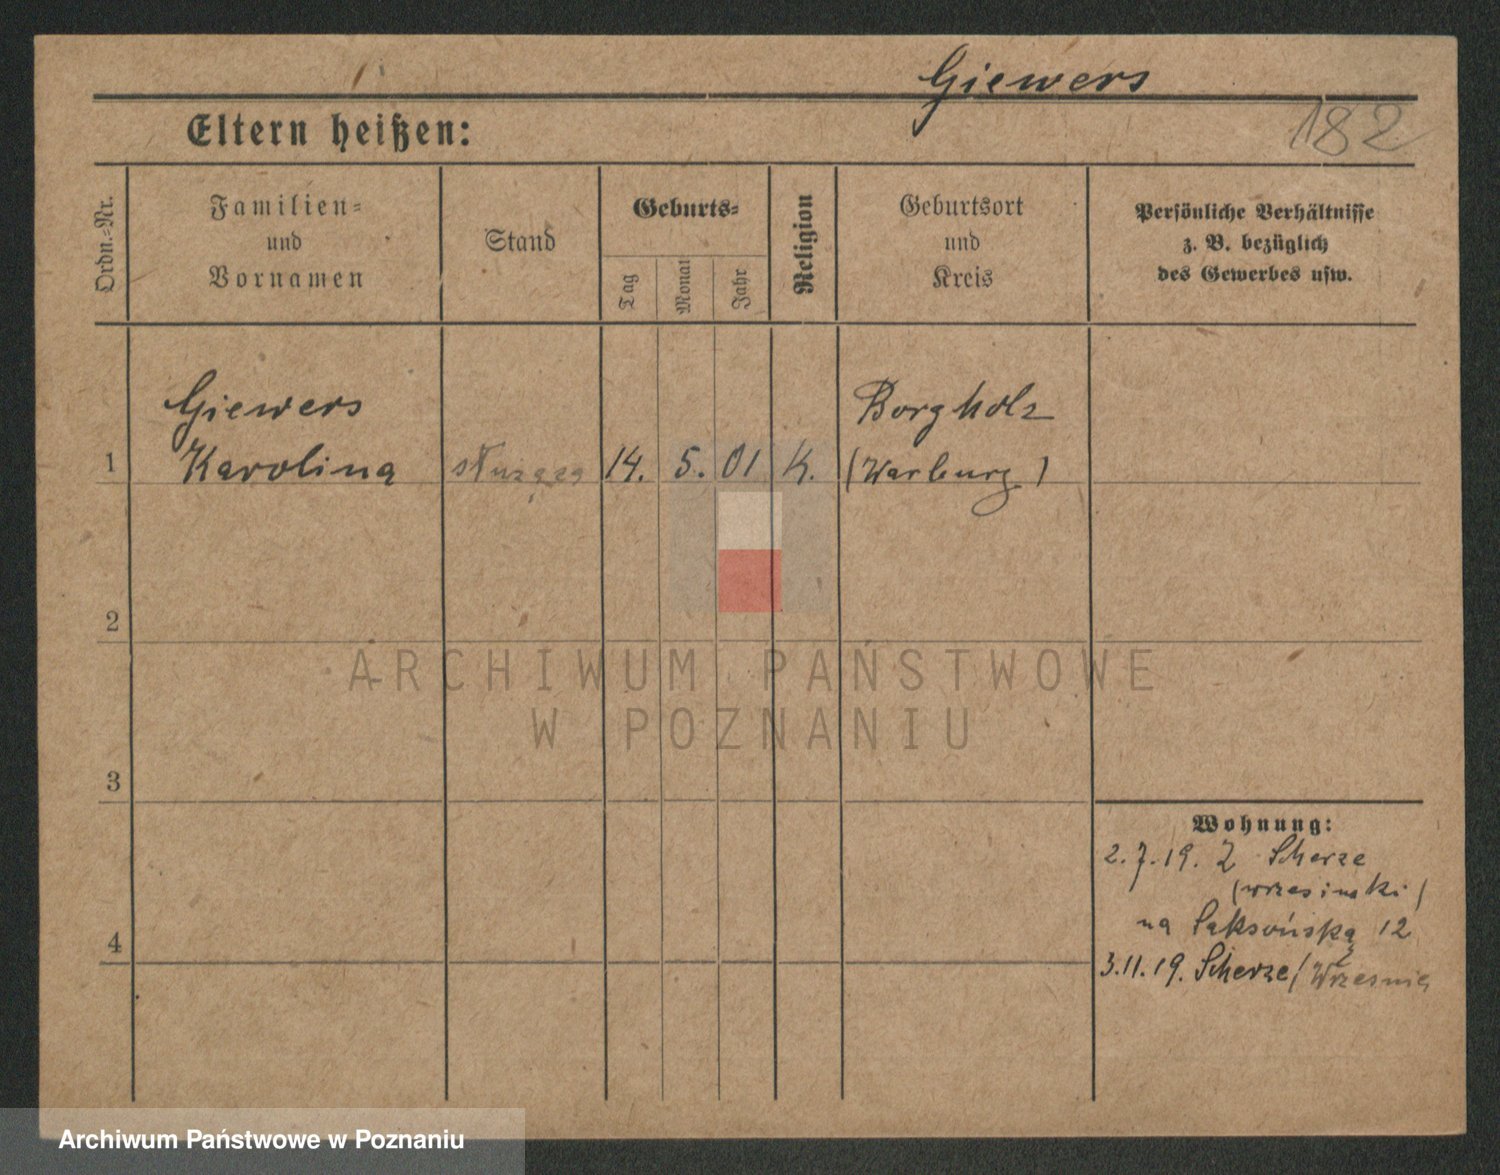 Giewers
182
Eltern heißen:
Ordn.-Nr.
Familien-
und
Vornamen
Stand
Geburts-
Tag
Monat
Jahr
Religion
Geburtsort
und
Kreis
Persönliche Verhältnisse
z. B. bezüglich
des Gewerbes usw.
Giewers
Borgholz
1 Karolina służąca 14. 5. 01 K. (Warburg)
2
3
4
Wohnung:
2.7.19. Z Scherze
(wrzesiński)
na Saksońską 12
3.11.19. Scherze/Wrześnie
ARCHIWUM PAŃSTWOWE
W POZNANIU
Archiwum Państwowe w Poznaniu